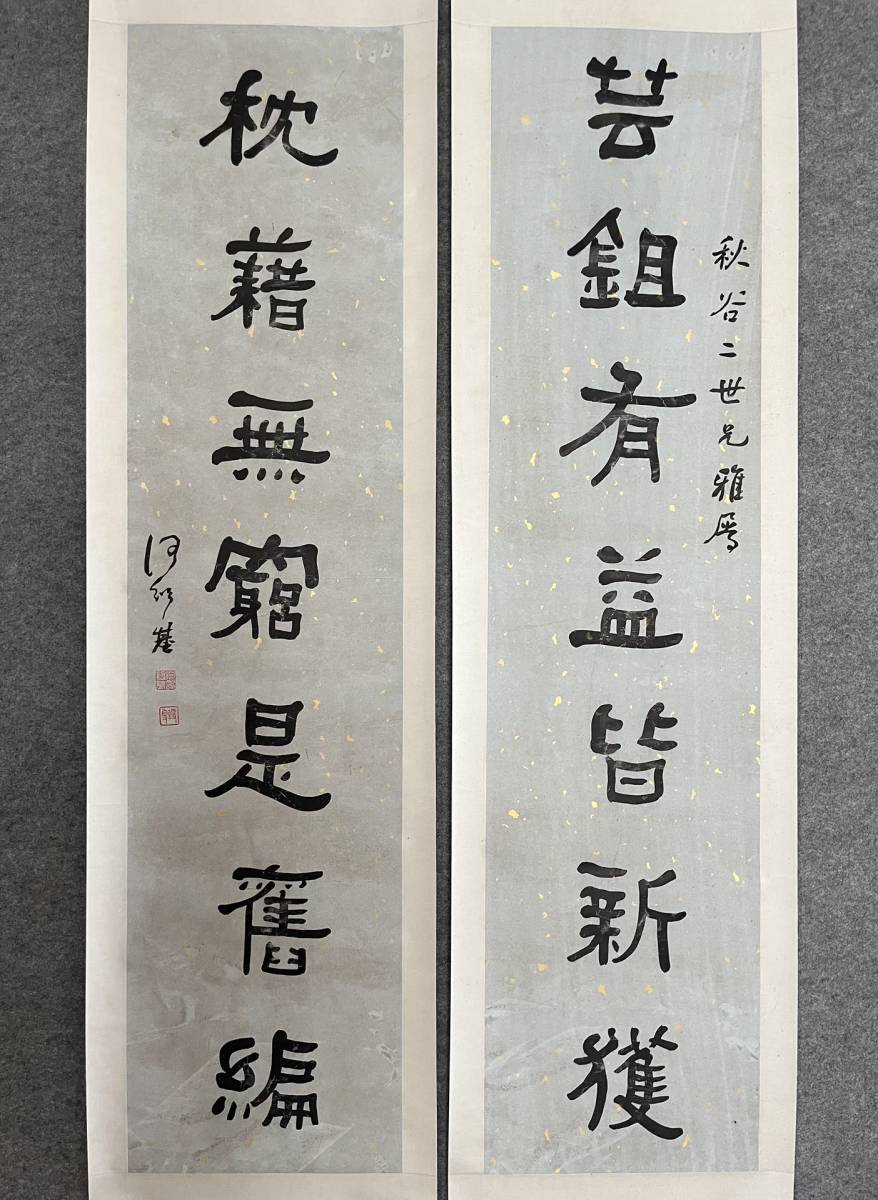 秋谷二世兄雅属
芸鉏有益皆新獲
枕藉無窮是舊編
何紹基